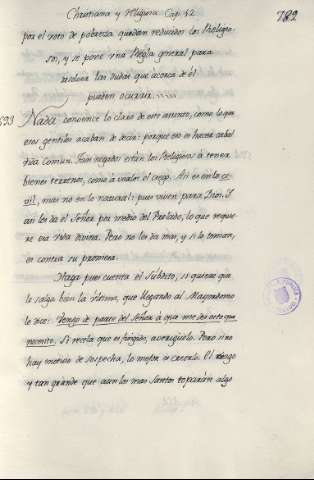 Christiana y Religiosa Cap. 42
782
por el voto de pobreza quedan reducidos los Religio-
sos, y se pone una Regla general para
resolver las dudas que acerca de él
pueden ocurrir.
533 Nada convence lo claro de este asunto, como lo que
eros gentiles acaban de decir: porque eso es hacer cabal
vida Comun. Tan negados están los Religiosos á tener
bienes terrenos, como á varlos el ciego. Asi es en lo ci-
vil, mas no en lo natural: pues viven para Dios. I
asi les da el Señor por medio del Prelado, lo que requie-
re esa vida divina. Pero no les da mas, y si lo toman,
es contra su promesa.
Haga pues cuenta el Subdito, si quiere que
le salga bien la forma, que llegando al Mayordomo
le dice: Vengo de parte del Señor á que me des esto que
necesito. Si recela que es fingido, averigüelo. Pero si no
hay motivo de sospecha, lo mejor es creerlo. El riesgo
y tan grande que aun los mas Santos toparán algo